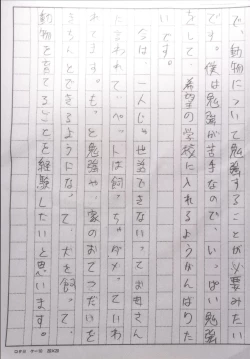 で、動物について勉強することが必要みたい
です。僕は勉強が苦手なので、いっぱい勉強
をして、希望の学校に入れるようがんばりた
いです。
今は、一人じゃ世話できないっておかあさん
に言われて、ペットは飼っちゃダメっていわ
れてます。もっと勉強や、家のおてつだいを
きちんとできるようになって、犬を飼って、
動物を育てることを経験したいと思います。